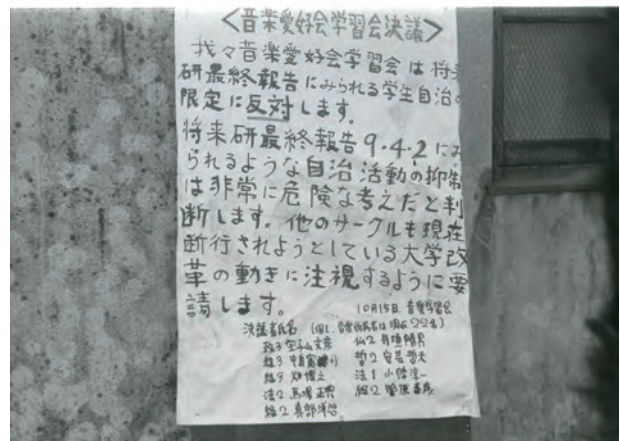 ＜音楽愛好会学習会決議＞
我々音楽愛好会学習会は将来
研最終報告にみられる学生自治の
限定に反対します。
将来研最終報告9・4・2にみ
られるような自治活動の抑制
は非常に危険な考えだと判
断します。他のサークルも現在
断行されようとしている大学改
革の動きに注視するように要
請します。
10月15日 音愛学習会
決議者氏名